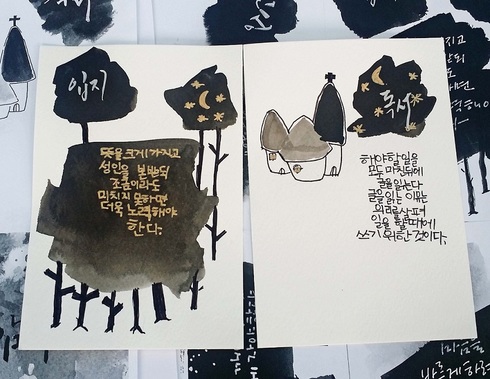 입지
뜻을 크게 가지고
성인을 본받되
조금이라도
미치지 못하면
더욱 노력해야
한다.
독서
해야 할 일을
모두 마친 뒤에
글을 읽는다
글을 읽는 이유는
의리를 살펴
일을 할 때에
쓰기 위한 것이다.
지고
받되
도
하면
마음을
바르게 하려